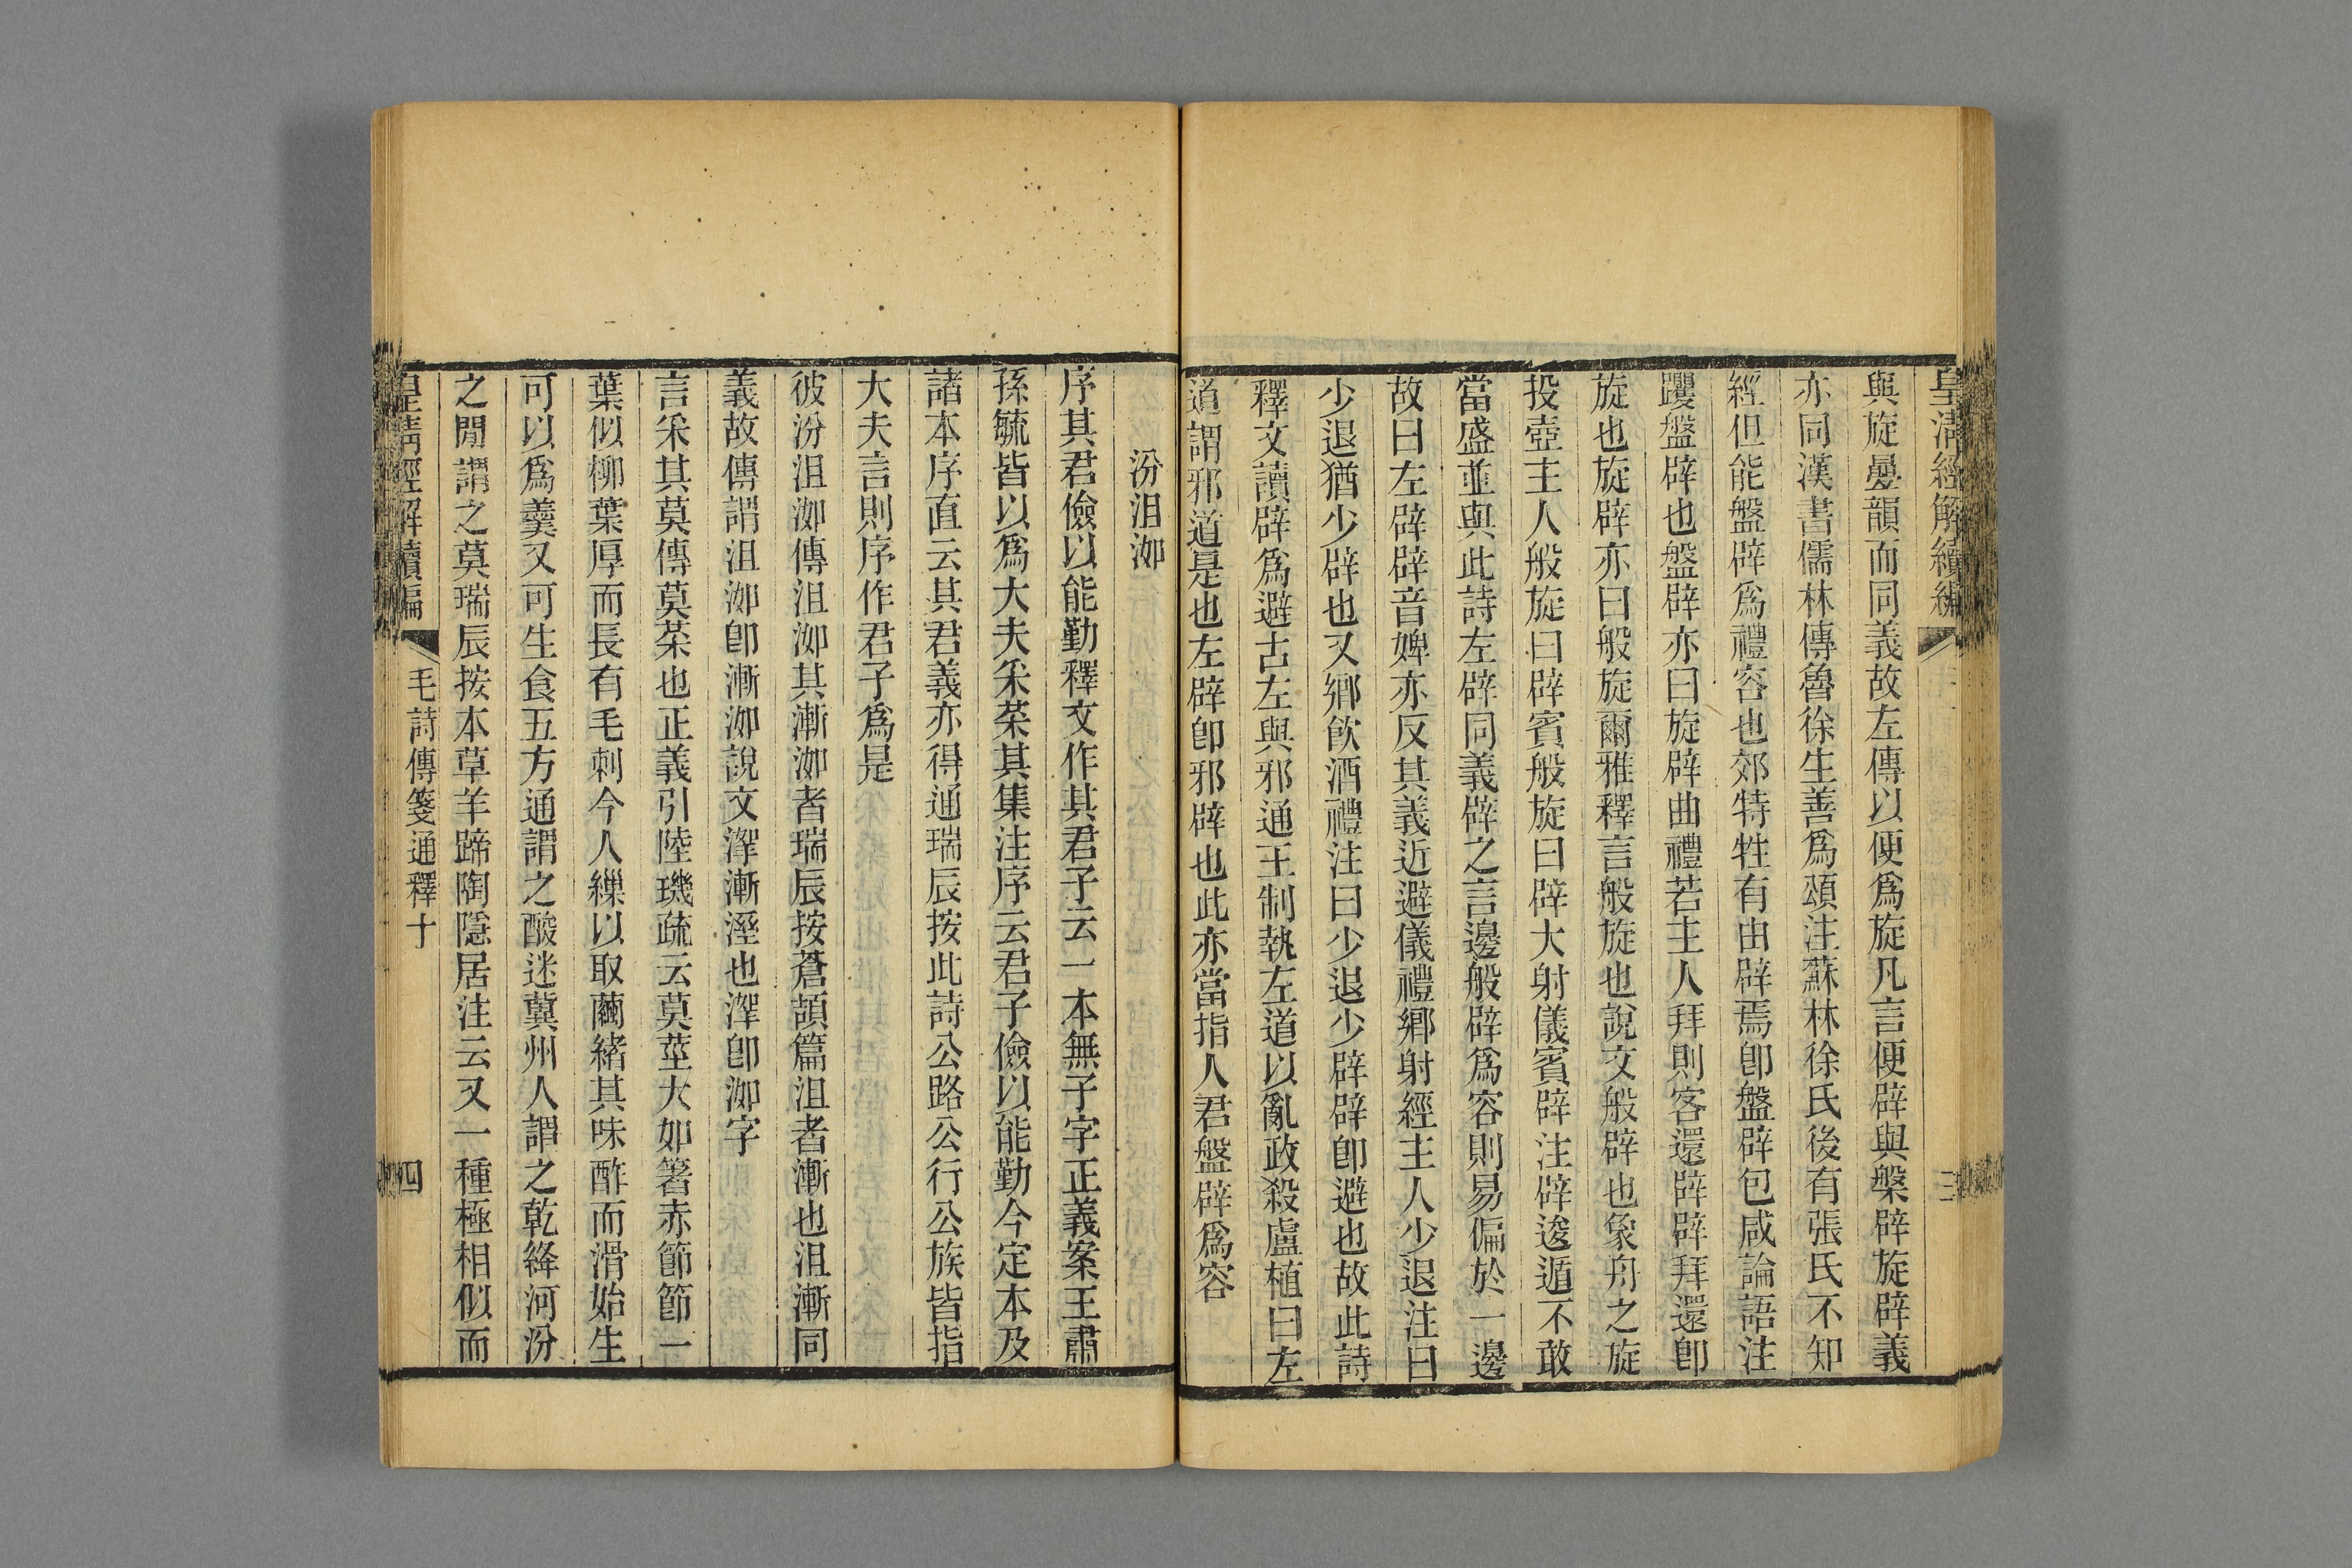 皇清經解續編
三
與旋疊韻而同義故左傳以便爲旋凡言便辟與槃辟旋辟義
亦同漢書儒林傳魯徐生善爲頌注蘇林徐氏後有張氏不知
經但能盤辟爲禮容也郊特牲有由辟焉卽盤辟包咸論語注
躩盤辟也盤辟亦曰旋辟曲禮若主人拜則客還辟辟拜還卽
旋也旋辟亦曰般旋爾雅釋言般旋也說文般辟也象舟之旋
投壺主人般旋曰辟賓般旋曰辟大射儀賓辟注辟逡遁不敢
當盛並與此詩左辟同義辟之言邊般辟爲容則易偏於一邊
故曰左辟辟音婢亦反其義近避儀禮鄉射經主人少退注曰
少退猶少辟也又鄉飮酒禮注曰少退少辟辟卽避也故此詩
釋文讀辟爲避古左與邪通王制執左道以亂政殺盧植曰左
道謂邪道是也左辟卽邪辟也此亦當指人君盤辟爲容
汾沮洳
序其君儉以能勤釋文作其君子云一本無子字正義案王肅
孫毓皆以爲大夫采菜其集注序云君子儉以能勤今定本及
諸本序直云其君義亦得通瑞辰按此詩公路公行公族皆指
大夫言則序作君子爲是
彼汾沮洳傳沮洳其漸洳者瑞辰按蒼頡篇沮者漸也沮漸同
義故傳謂沮洳卽漸洳說文漝漸溼也漝卽洳字
言采其莫傳莫菜也正義引陸璣疏云莫莖大如箸赤節節一
葉似柳葉厚而長有毛刺今人繅以取繭緒其味酢而滑始生
可以爲羹又可生食五方通謂之酸迷冀州人謂之乾絳河汾
之閒謂之莫瑞辰按本草羊蹄陶隱居注云又一種極相似而
皇清經解續編
毛詩傳箋通釋十
四